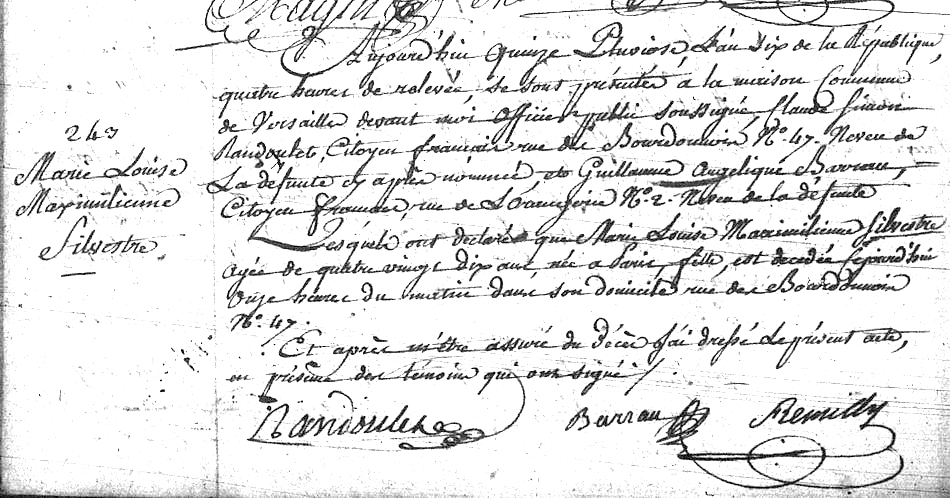 243
Marie Louise
Maximilienne
Silvestre
Aujourd'hui quinze Pluviose L'an dix de la République,
quatre heures de relevée, se sont présentés à la maison Commune
de Versaille devant moi officier public soussigné, Claude Simon
Randoulet, Citoyen français rue des Bourdonnois N.º 47. Neveu de
La défunte cy après nommée, et Guillaume Angelique Barrau,
Citoyen français, rue de L'orangerie N.º 2. Neveu de la défunte
Lesquels ont déclaré que Marie Louise Maximilienne Silvestre
agée de quatre vingt dix ans, née à Paris, fille, est decedée cejourd'hui
onze heures du matin dans son domicile rue des Bourdonnois
N.º 47.
Et après m'être assuré du décès j'ai dressé le présent acte,
en présence des témoins qui ont signé /.
Randoulet
Barrau
Remilly